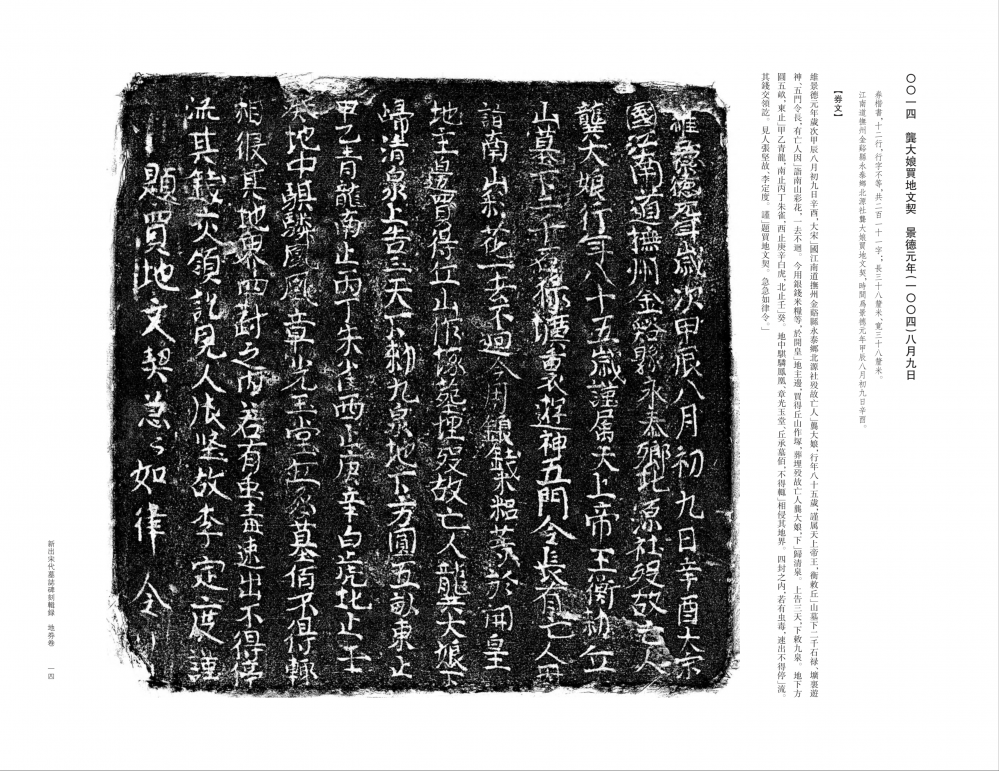 〇〇一四　龔大娘買地文契　景德元年(一〇〇四)八月九日
券楷書，十二行，行字不等，共二百一十一字；長三十八釐米、寬三十八釐米。
江南道撫州金谿縣永泰鄉北源社龔大娘買地文契，時間爲景德元年甲辰八月初九日辛酉。
【券文】
維景德元年歲次甲辰八月初九日辛酉，大宋」國江南道撫州金谿縣永泰鄉北源社歿故亡人」龔大娘，行年八十五歲，謹属天上帝王，衡敕丘」山墓下二千石禄、壙裏遊
神、五門令長，有亡人因」詣南山彩花，一去不迴。今用銀錢米糧等，於開皇」地主邊，買得丘山作塚，葬埋歿故亡人龔大娘，下」歸清泉。上告三天，下敕九泉。地下方
圓五畝，東止」甲乙青龍，南止丙丁朱雀，西止庚辛白虎，北止壬」癸。地中騏驎鳳凰、章光玉堂、丘承墓佰，不得輒」相侵其地界。四封之内，若有虫毒，速出不得停」流。
其錢交領訖。見人張坚故、李定度。謹」題買地文契。急急如律令。」
維景德元年歲次甲辰八月初九日辛酉大宋
國江南道撫州金谿縣永泰鄉北源社歿故亡人
龔大娘行年八十五歲謹属天上帝王衡勑丘
山墓下二千石禄壙裏遊神五門令長有亡人因
詣南山彩花一去不迴今用銀錢米粮等於開皇
地主邊買得丘山作塚葬埋歿故亡人龔大娘下
歸清泉上告三天下勑九泉地下方圓五畝東止
甲乙青龍南止丙丁朱雀西止庚辛白虎北止壬
癸地中騏驎鳳凰章光玉堂丘承墓佰不得輒
相侵其地界四封之内若有虫毒速出不得停
流其錢交領訖見人張坚故李定度謹
題買地文契急々如律令
新出宋代墓誌碑刻輯錄　地券卷　一四